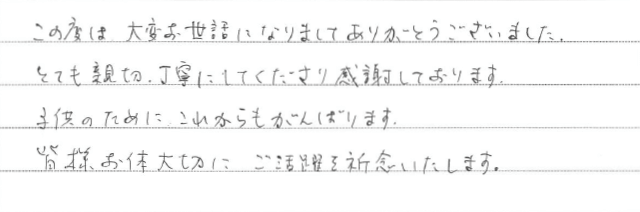 この度は 大変お世話になりましてありがとうございました.
とても親切.丁寧にしてくださり感謝しております.
子供のために これからもがんばります.
皆様お体大切に ご活躍を祈念いたします。